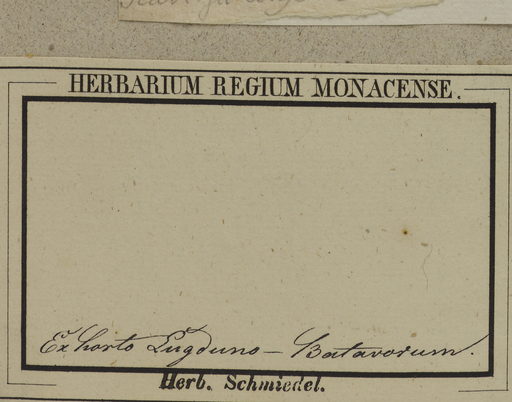 HERBARIUM REGIUM MONACENSE.
Ex horto Lugduno – Batavorum.
Herb. Schmiedel.